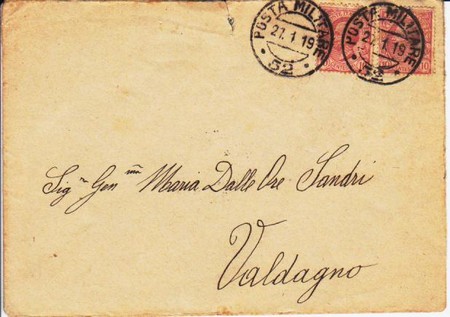 POSTA MILITARE
27.1.19
32
POSTA MILITARE
27.1.19
32
10
Sig.ra Gen.ma Maria Dalle Ore Sandri
Valdagno